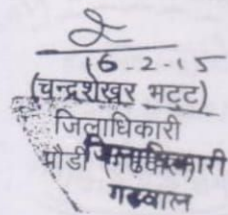 16-2-15
(चन्द्रशेखर भट्ट)
जिलाधिकारी
पौडी (गढवाल)
जिलाधिकारी
गढवाल